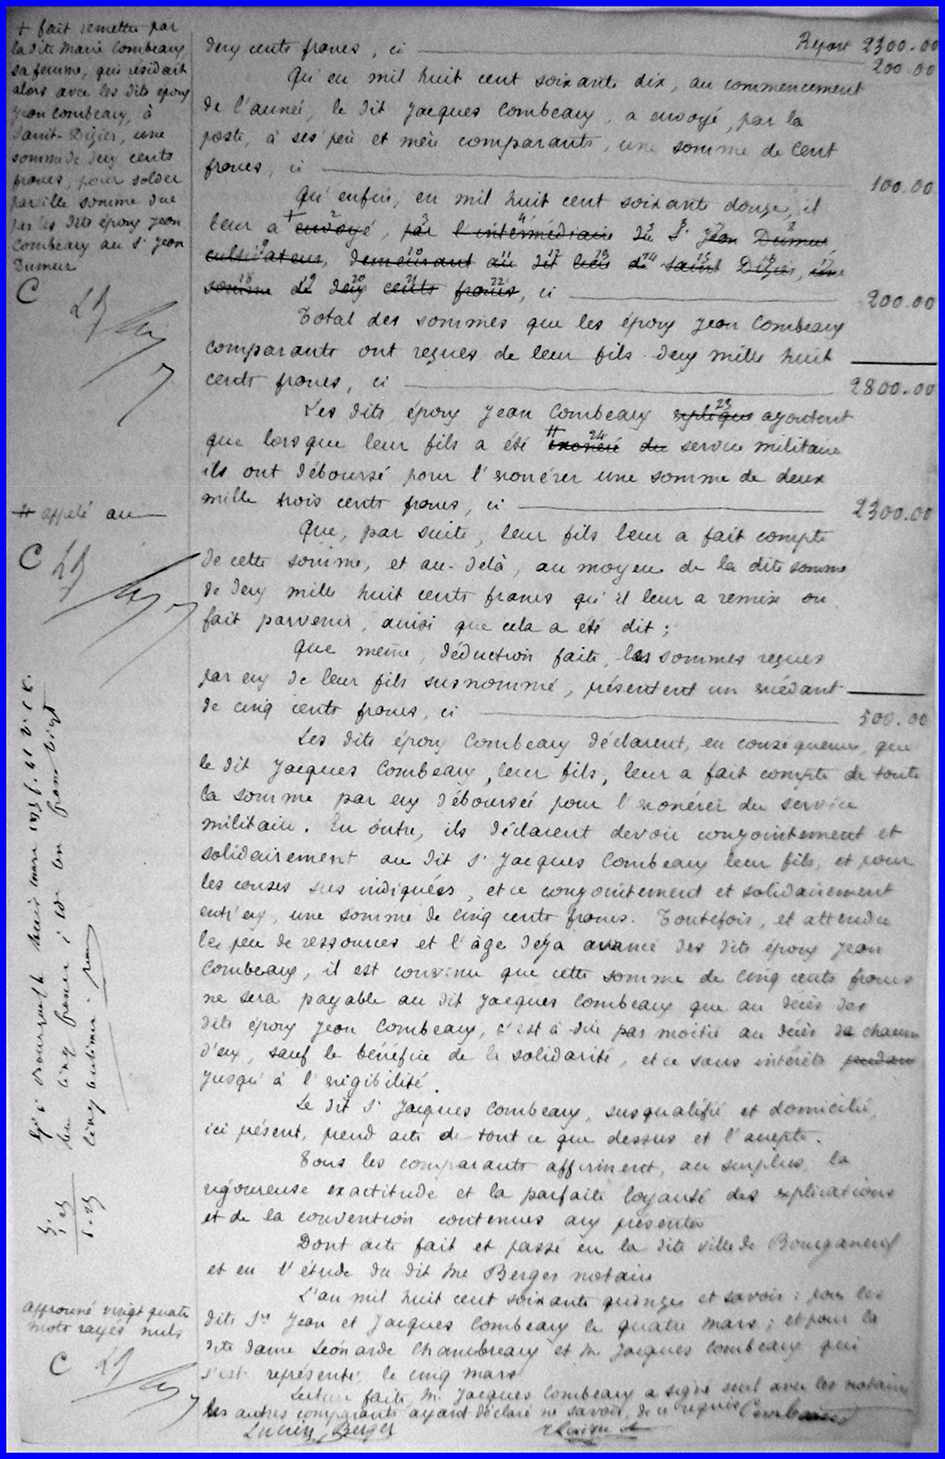 + fait remettre par
la dite Marie Combeau,
sa femme, qui résidait
alors avec les dits époux
Jean Combeau, à
Saint-Dizier, une
somme de deux cents
francs, pour solder
pareille somme due
par les dits époux Jean
Combeau au Sr Jean
Dumeur
C
# appelé au
C
Approuvé vingt quatre
mots rayés nuls
C
Report 2300.00
deux cents francs, ci 200.00
Qu'en mil huit cent soixante dix, au commencement
de l'année, le dit Jacques Combeau, a envoyé, par la
poste, à ses père et mère comparants, une somme de cent
francs, ci 100.00
Qu'enfin, en mil huit cent soixante douze, il
leur a + envoyé, par l'intermédiaire du Sr Jean Dumeur
cultivateur, demeurant au dit lieu de Saint Dizier, une
somme de deux cents francs, ci 200.00
Total des sommes que les époux Jean Combeau
comparants ont reçues de leur fils deux mille huit
cents francs, ci 2800.00
Les dits époux Jean Combeau ajoutent
que lorsque leur fils a été # exonéré du service militaire
ils ont déboursé pour l'exonérer une somme de deux
mille trois cents francs, ci 2300.00
Que, par suite, leur fils leur a fait compte
de cette somme, et au-delà, au moyen de la dite somme
de deux mille huit cents francs qu'il leur a remise ou
fait parvenir, ainsi que cela a été dit ;
Que même, déduction faite, les sommes reçues
par eux de leur fils susnommé, présentent un excédant
de cinq cents francs, ci 500.00
Les dits époux Combeau déclarent, en conséquence, que
le dit Jacques Combeau, leur fils, leur a fait compte de toute
la somme par eux déboursée pour l'exonérer du service
militaire. En outre, ils déclarent devoir conjointement et
solidairement au dit Sr Jacques Combeau leur fils, et pour
les causes sus indiquées, et ce conjointement et solidairement
entr'eux, une somme de cinq cents francs. Toutefois, et attendu
le peu de ressources et l'âge déjà avancé des dits époux Jean
Combeau, il est convenu que cette somme de cinq cents francs
ne sera payable au dit Jacques Combeau que au décès des
dits époux Jean Combeau, c'est à dire par moitié au décès de chacun
d'eux, sauf le bénéfice de la solidarité, et ce sans intérêts pendant
jusqu'à l'exigibilité.
Le dit Sr Jacques Combeau, susqualifié et domicilié,
ici présent, prend acte de tout ce que dessus et l'accepte.
Tous les comparants affirment, au surplus, la
rigoureuse exactitude et la parfaite loyauté des explications
et de la convention contenues aux présentes
Dont acte fait et passé en la dite ville de Bourganeuf
et en l'étude du dit Me Berger notaire
L'an mil huit cent soixante quinze et savoir : pour les
dits Srs Jean et Jacques Combeau le quatre mars ; et pour la
dite dame Léonarde Chambreau et M. Jacques Combeau qui
s'est représenté, le cinq mars
Lecture faite, M. Jacques Combeau a signé seul avec les notaires
les autres comparants ayant déclaré ne savoir, de ce requis Combeau
Lucien Berger